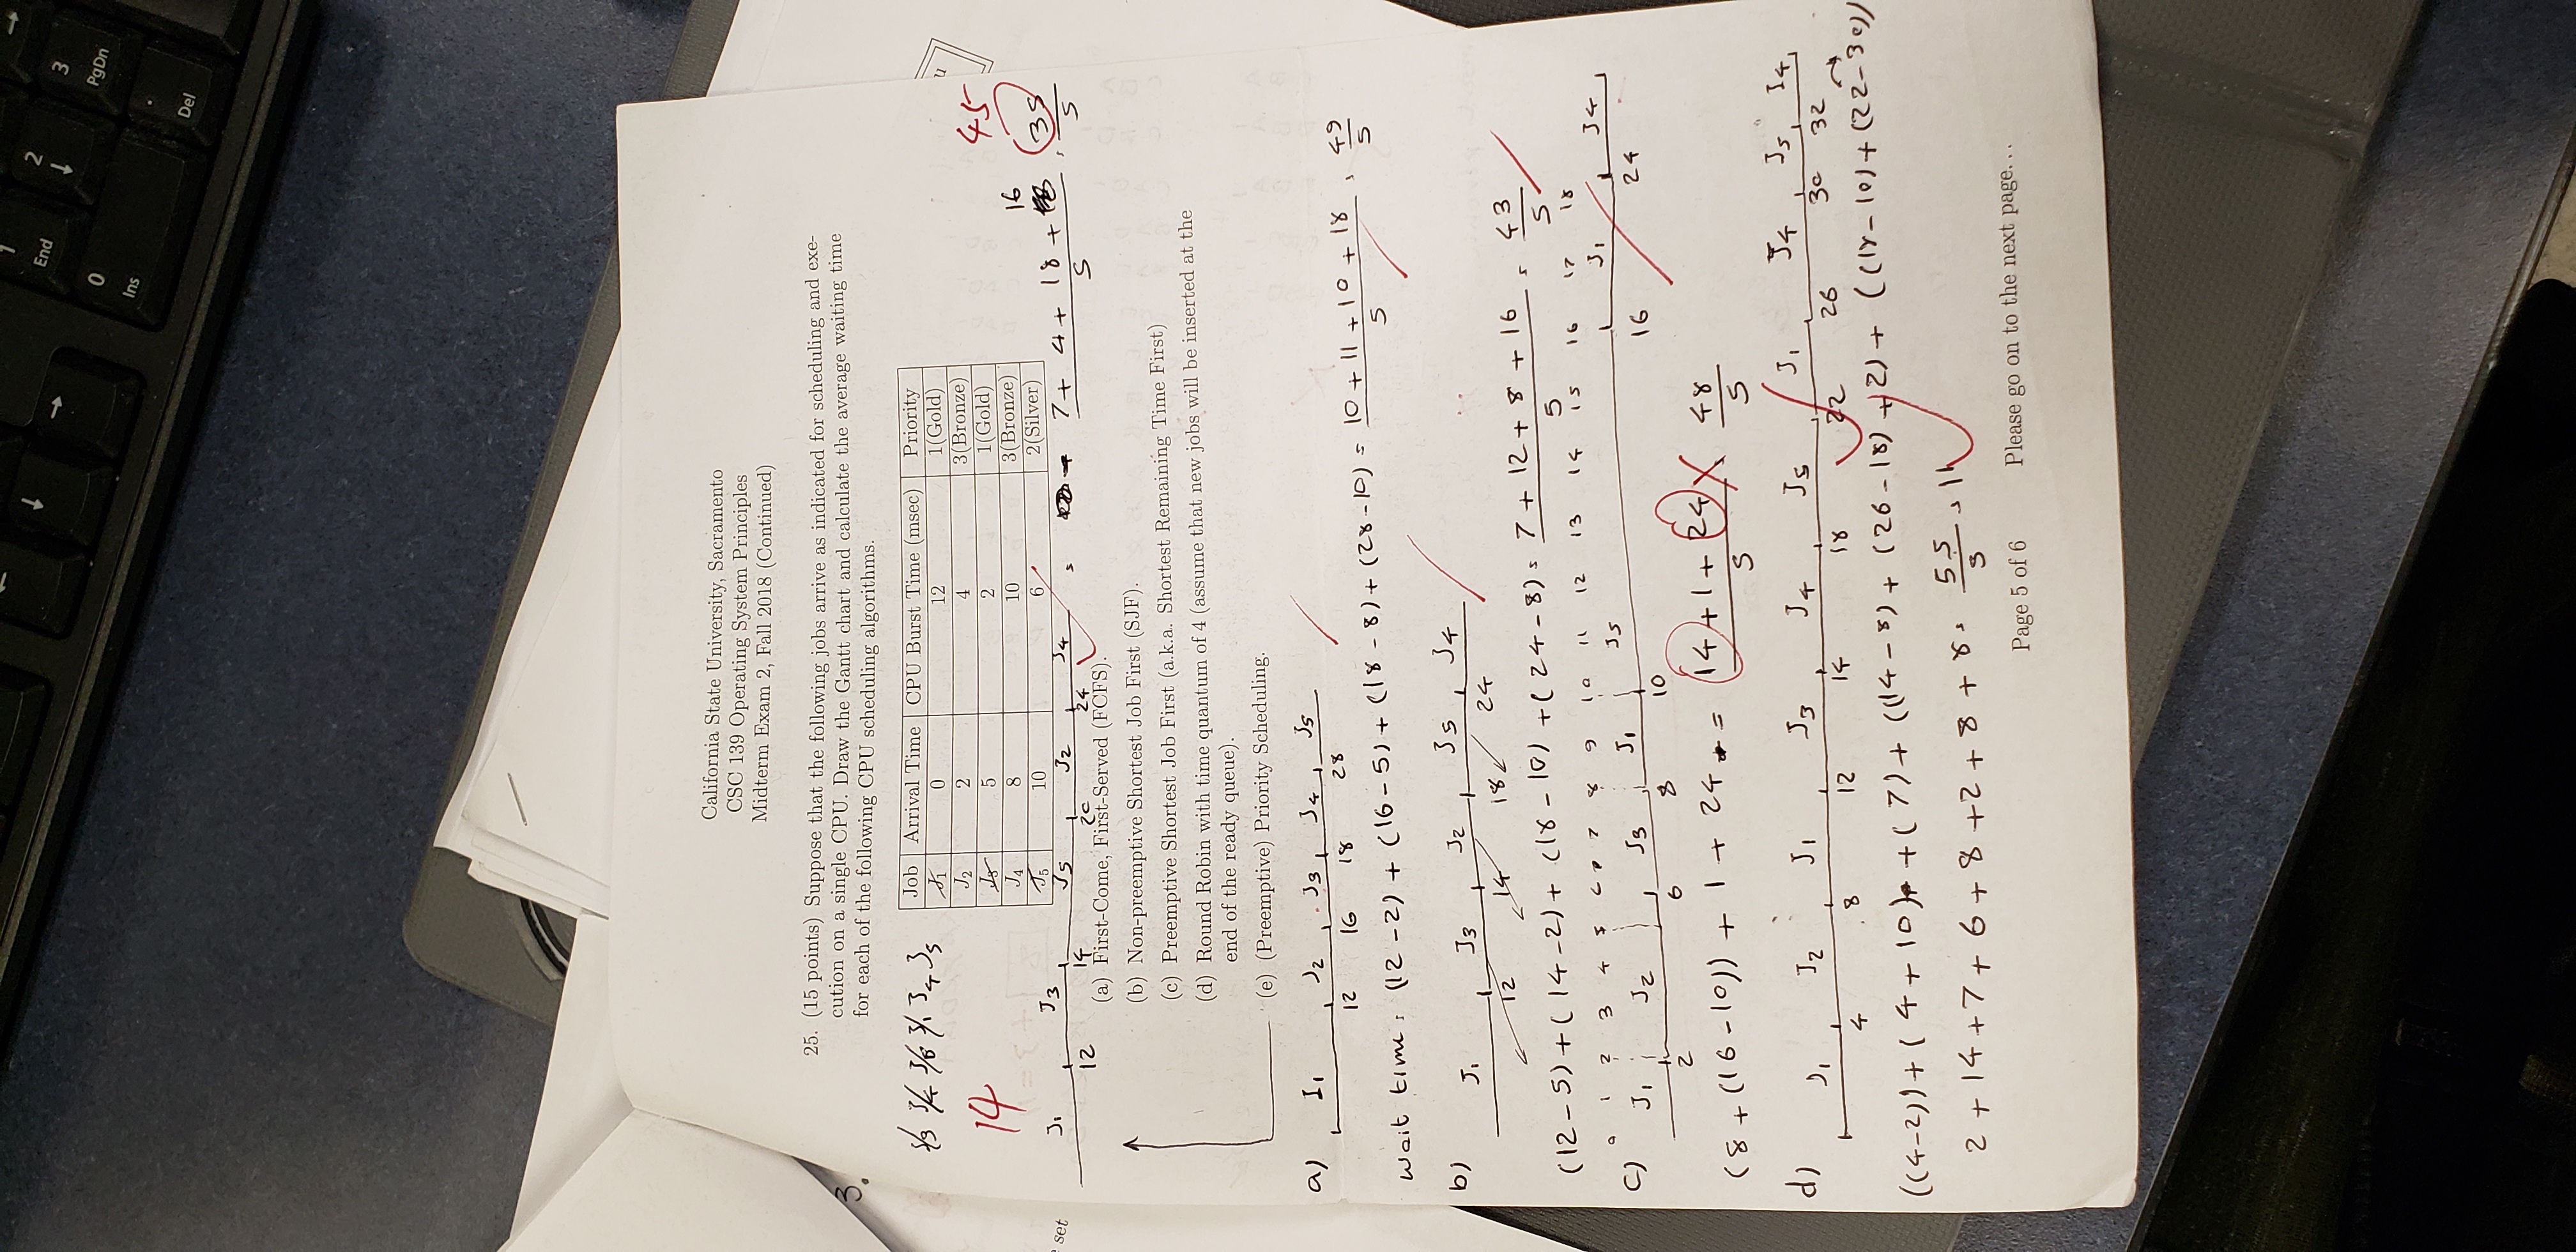 1
End
2
3
PgDn
0
Ins
.
Del
California State University, Sacramento
CSC 139 Operating System Principles
Midterm Exam 2, Fall 2018 (Continued)
3.
25. (15 points) Suppose that the following jobs arrive as indicated for scheduling and exe-
cution on a single CPU. Draw the Gantt chart and calculate the average waiting time
for each of the following CPU scheduling algorithms.
J4 J5
Job Arrival Time CPU Burst Time (msec) Priority
J1 0 12 1(Gold)
J2 2 4 3(Bronze)
J3 5 2 1(Gold)
J4 8 10 3(Bronze)
J5 10 6 2(Silver)
u
14
45
set
J1 J3 J5 J2 J4
12 14 20 24
16
7 + 4 + 18 + 35
5 5
(a) First-Come, First-Served (FCFS).
(b) Non-preemptive Shortest Job First (SJF).
(c) Preemptive Shortest Job First (a.k.a. Shortest Remaining Time First)
(d) Round Robin with time quantum of 4 (assume that new jobs will be inserted at the
end of the ready queue).
(e) (Preemptive) Priority Scheduling.
a) J1 J2 J3 J4 J5
12 16 18 28
wait time: (12-2) + (16-5) + (18-8) + (28-10) = 10 + 11 + 10 + 18 = 49
5 5
b) J1 J3 J2 J5 J4
12 14 18 24
(12-5) + (14-2) + (18-10) + (24-8) = 7 + 12 + 8 + 16 = 43
5 5
0 1 2 3 4 5 6 7 8 9 10 11 12 13 14 15 16 17 18
c) J1 J2 J3 J1 J5 J1 J4
2 6 8 10 16 24
(8 + (16-10)) + 1 + 24 = 14 + 1 + 24 48
5 5
d) J1 J2 J1 J3 J4 J5 J1 J4 J5 J4
4 8 12 14 18 22 26 30 32
((4-2)) + (4+10) + (7) + ((14-8) + (26-18) + 2) + ((18-10) + (22-30))
2 + 14 + 7 + 6 + 8 + 2 + 8 + 8 = 55 = 11
5
Page 5 of 6 Please go on to the next page...